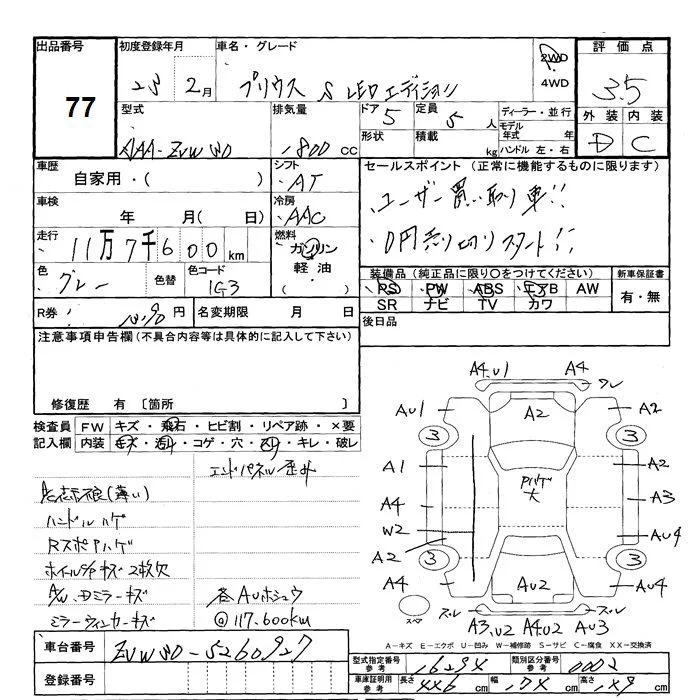 出品番号 初度登録年月 車名・グレード 2WD 4WD 評価点
77 23 2月 プリウス S LEDエディション 3.5
型式 排気量 ドア 5 定員 5 人 ディーラー・並行 外装 内装
DAA-ZVW30 1800 cc 形状 積載 kg モデル年式 年 ハンドル 左・右 D C
車歴 シフト セールスポイント (正常に機能するものに限ります)
自家用・( ) AT ユーザー買い取り車!!
車検 冷房
年 月( 日) AAC 0円売り切りスタート!!
走行 燃料
11万7千600km ガソリン
軽油・( )
色 色替 色コード 装備品(純正品に限り〇をつけてください) 新車保証書
グレー 1G3 PS PW ABS エアB AW 有・無
SR ナビ TV カワ
R券 円 名変期限 月 日 後日品
注意事項申告欄(不具合内容等は具体的に記入して下さい)
修復歴 有 〔箇所 〕
検査員 FW キズ・飛石・ヒビ割・リペア跡・×要
記入欄 内装 キズ・汚れ・コゲ・穴・スリ・キレ・破レ
エンドパネル歪み
ハンドルハゲ
RスポPハゲ
キズ2枚欠
ドミラーキズ 各AUホシュウ
ミラーウィンカーキズ @117.600km
A4.U1 A4
スレ
AU1 A2 A2
3 3
A1 A2
Pハゲ大
A4 A3
W2 AU4
A2
3 3
A4 AU2 AU4
スペア スレ スレ
A3.U2 A4.U2 AU3
A-キズ E-エクボ U-凹み W-補修跡 S-サビ C-腐食 XX-交換済
車台番号 ZVW30-5260927
型式指定番号 参考 16294 類別区分番号 参考 0002
登録番号
車庫証明用 参考 長さ 446 cm 幅 174 cm 高さ 149 cm